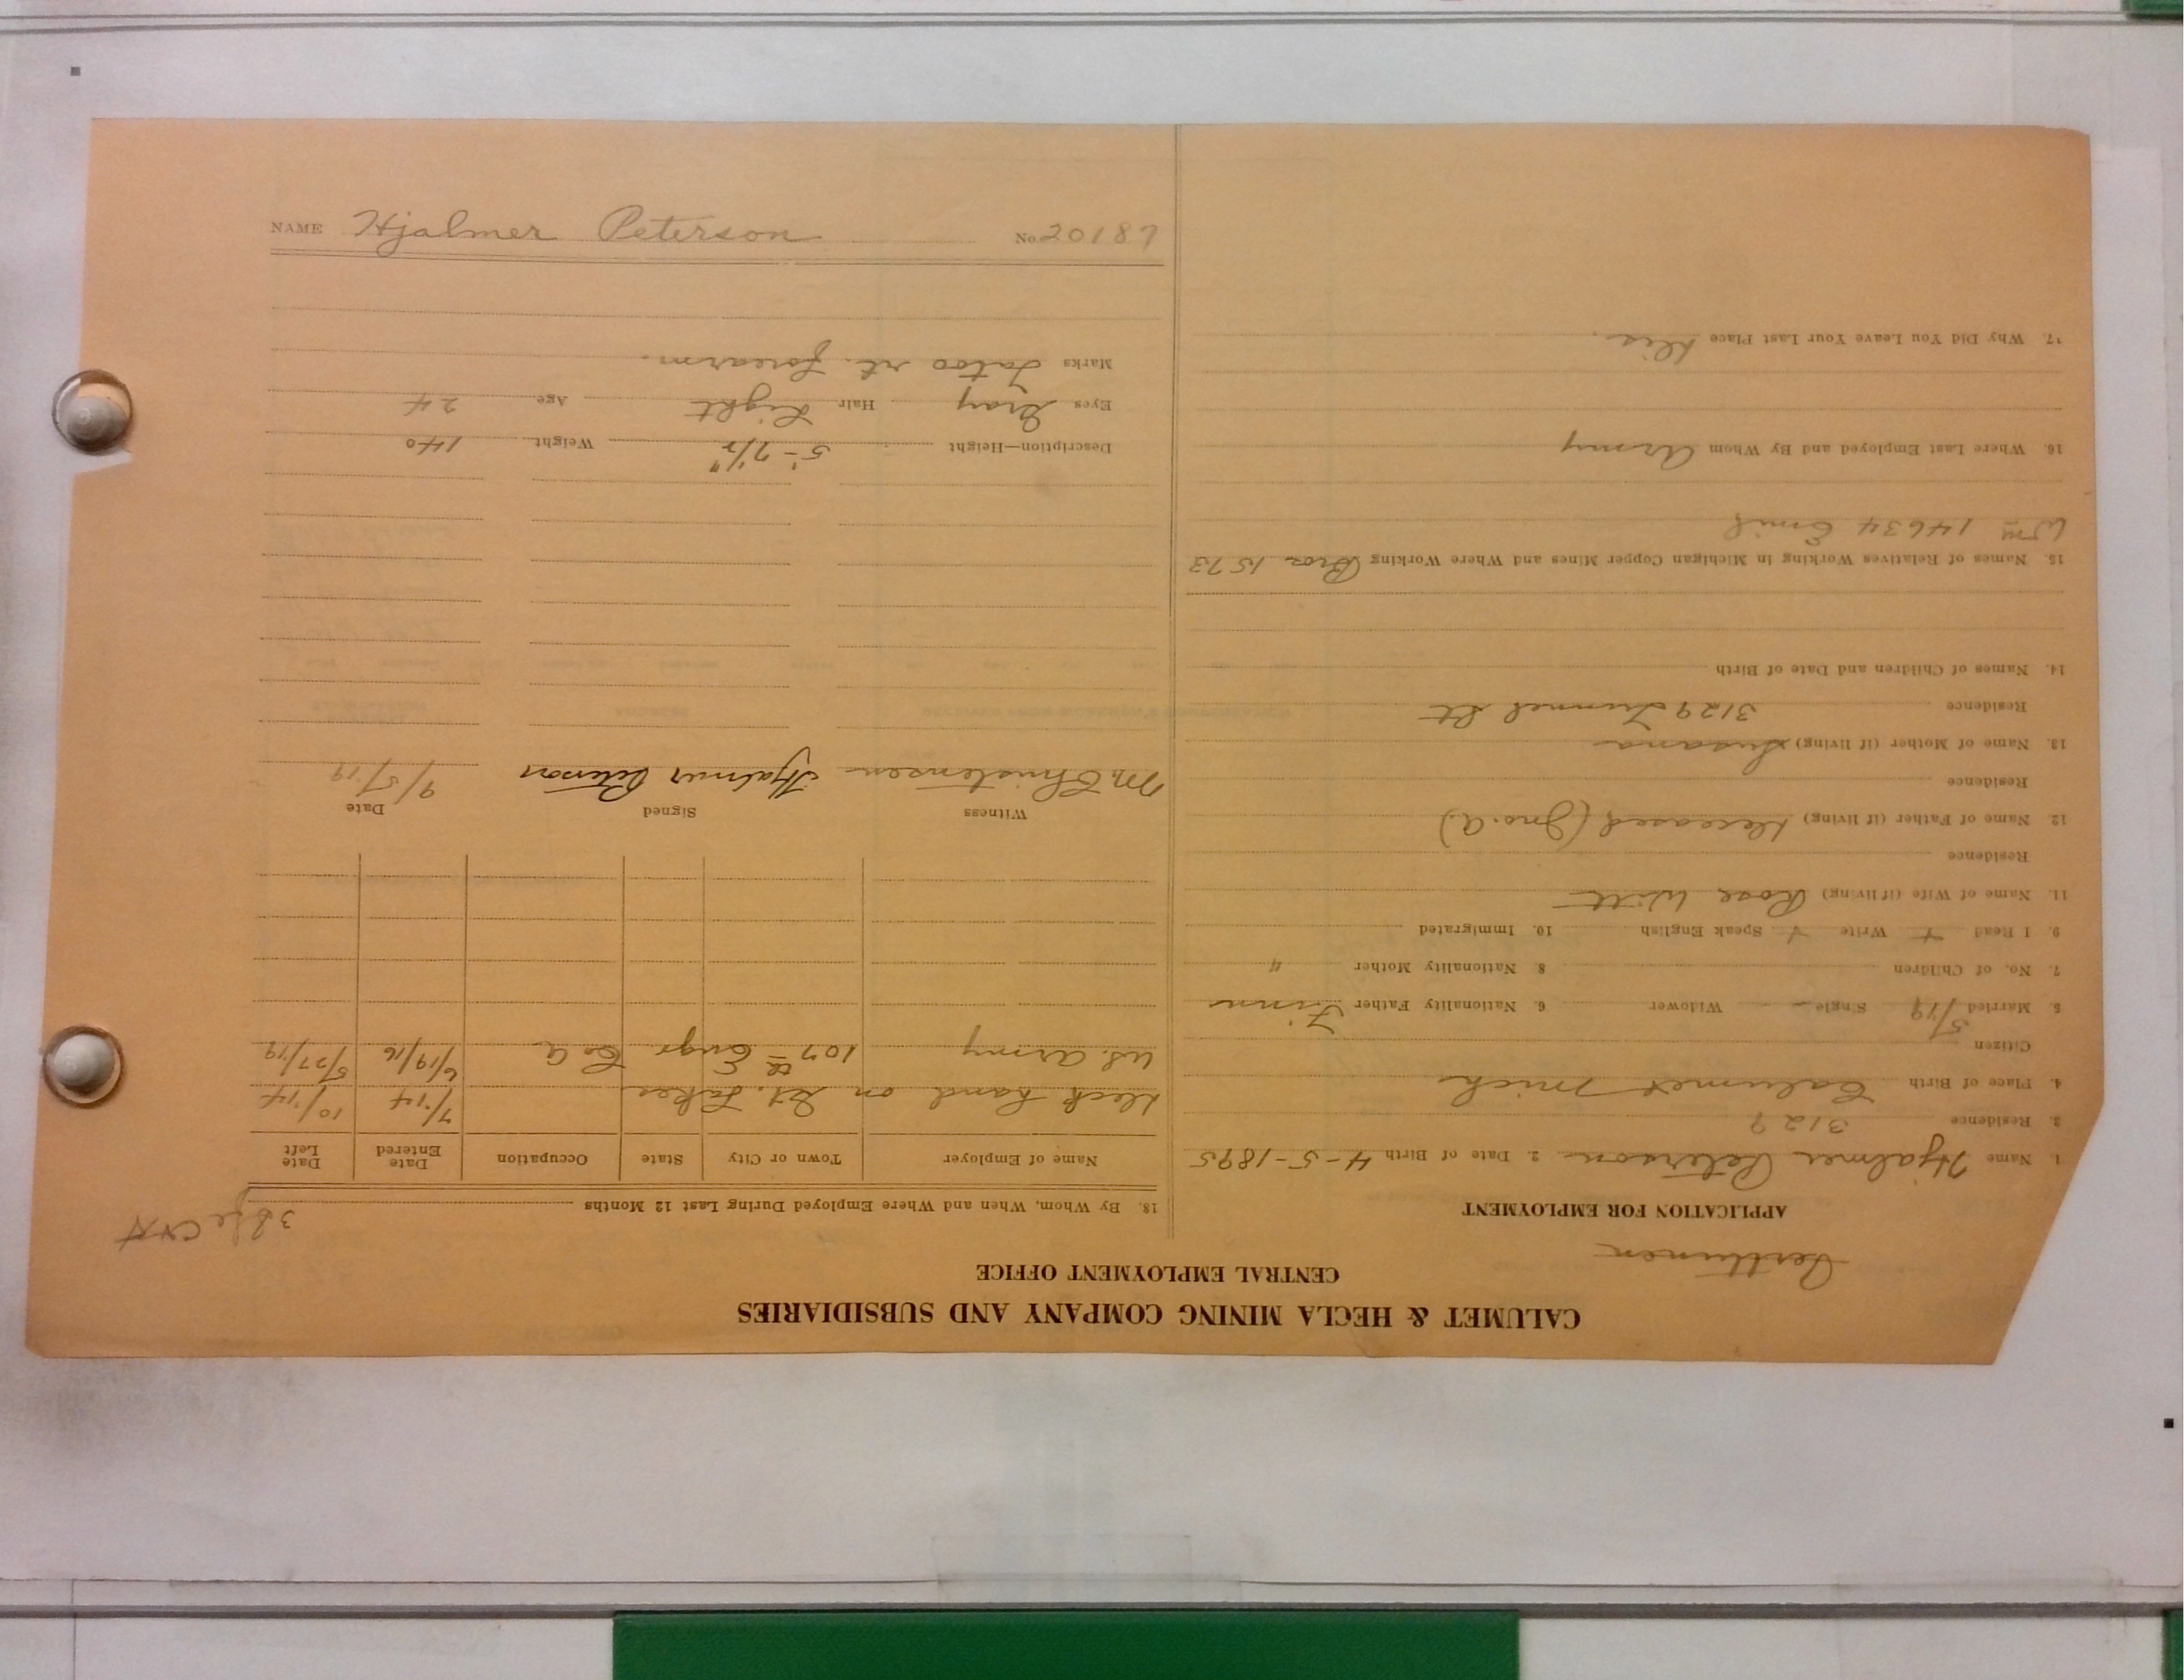 NAME Hjalmer Peterson No. 20187
CALUMET & HECLA MINING COMPANY AND SUBSIDIARIES
CENTRAL EMPLOYMENT OFFICE
APPLICATION FOR EMPLOYMENT
1. Name Hjalmer Peterson 2. Date of Birth 4-5-1895
3. Residence 3129
4. Place of Birth Calumet Mich
Citizen
5. Married 5/19 Single Widower 6. Nationality Father Finn
7. No. of Children 8. Nationality Mother "
9. I Read + Write + Speak English 10. Immigrated
11. Name of Wife (if living) Rose Witt
Residence
12. Name of Father (if living) Deceased (Jno. A.)
Residence
13. Name of Mother (if living) Susana
Residence 3129 Tunnel St
14. Names of Children and Date of Birth
15. Names of Relatives Working in Michigan Copper Mines and Where Working Bros. 1573
Wm 14634 Emil
16. Where Last Employed and By Whom Army
17. Why Did You Leave Your Last Place Dis.
18. By Whom, When and Where Employed During Last 12 Months
Name of Employer Town or City State Occupation Date Entered Date Left
Deck hand on Gt. Lakes 7/14 10/14
U.S. Army 107th Engr. Co A 6/19/16 5/27/19
Witness Signed Date
M. Christensen Hjalmer Peterson 9/5/19
Description—Height 5'-7 1/2" Weight 140
Eyes Gray Hair Light Age 24
Marks Tatoo rt. forearm.